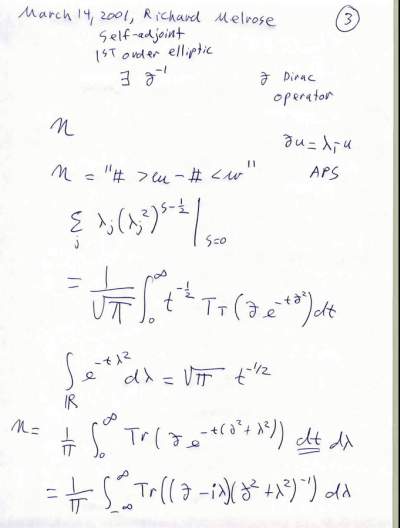 March 14, 2001, Richard Melrose
3
Self-adjoint
1ST order elliptic
∃ ð⁻¹
ð Dirac
operator
η
ðu = λᵢ u
η = "# > w - # < w"
APS
∑_j λ_j (λ_j²)^{s-1/2} |_{s=0}
= 1/√π ∫_0^∞ t^{-1/2} Tr(ð e^{-tð²}) dt
∫_ℝ e^{-tλ²} dλ = √π t^{-1/2}
η = 1/π ∫_0^∞ Tr(ð e^{-t(ð²+λ²)}) dt dλ
= 1/π ∫_{-∞}^∞ Tr((ð - iλ)(ð²+λ²)^{-1}) dλ